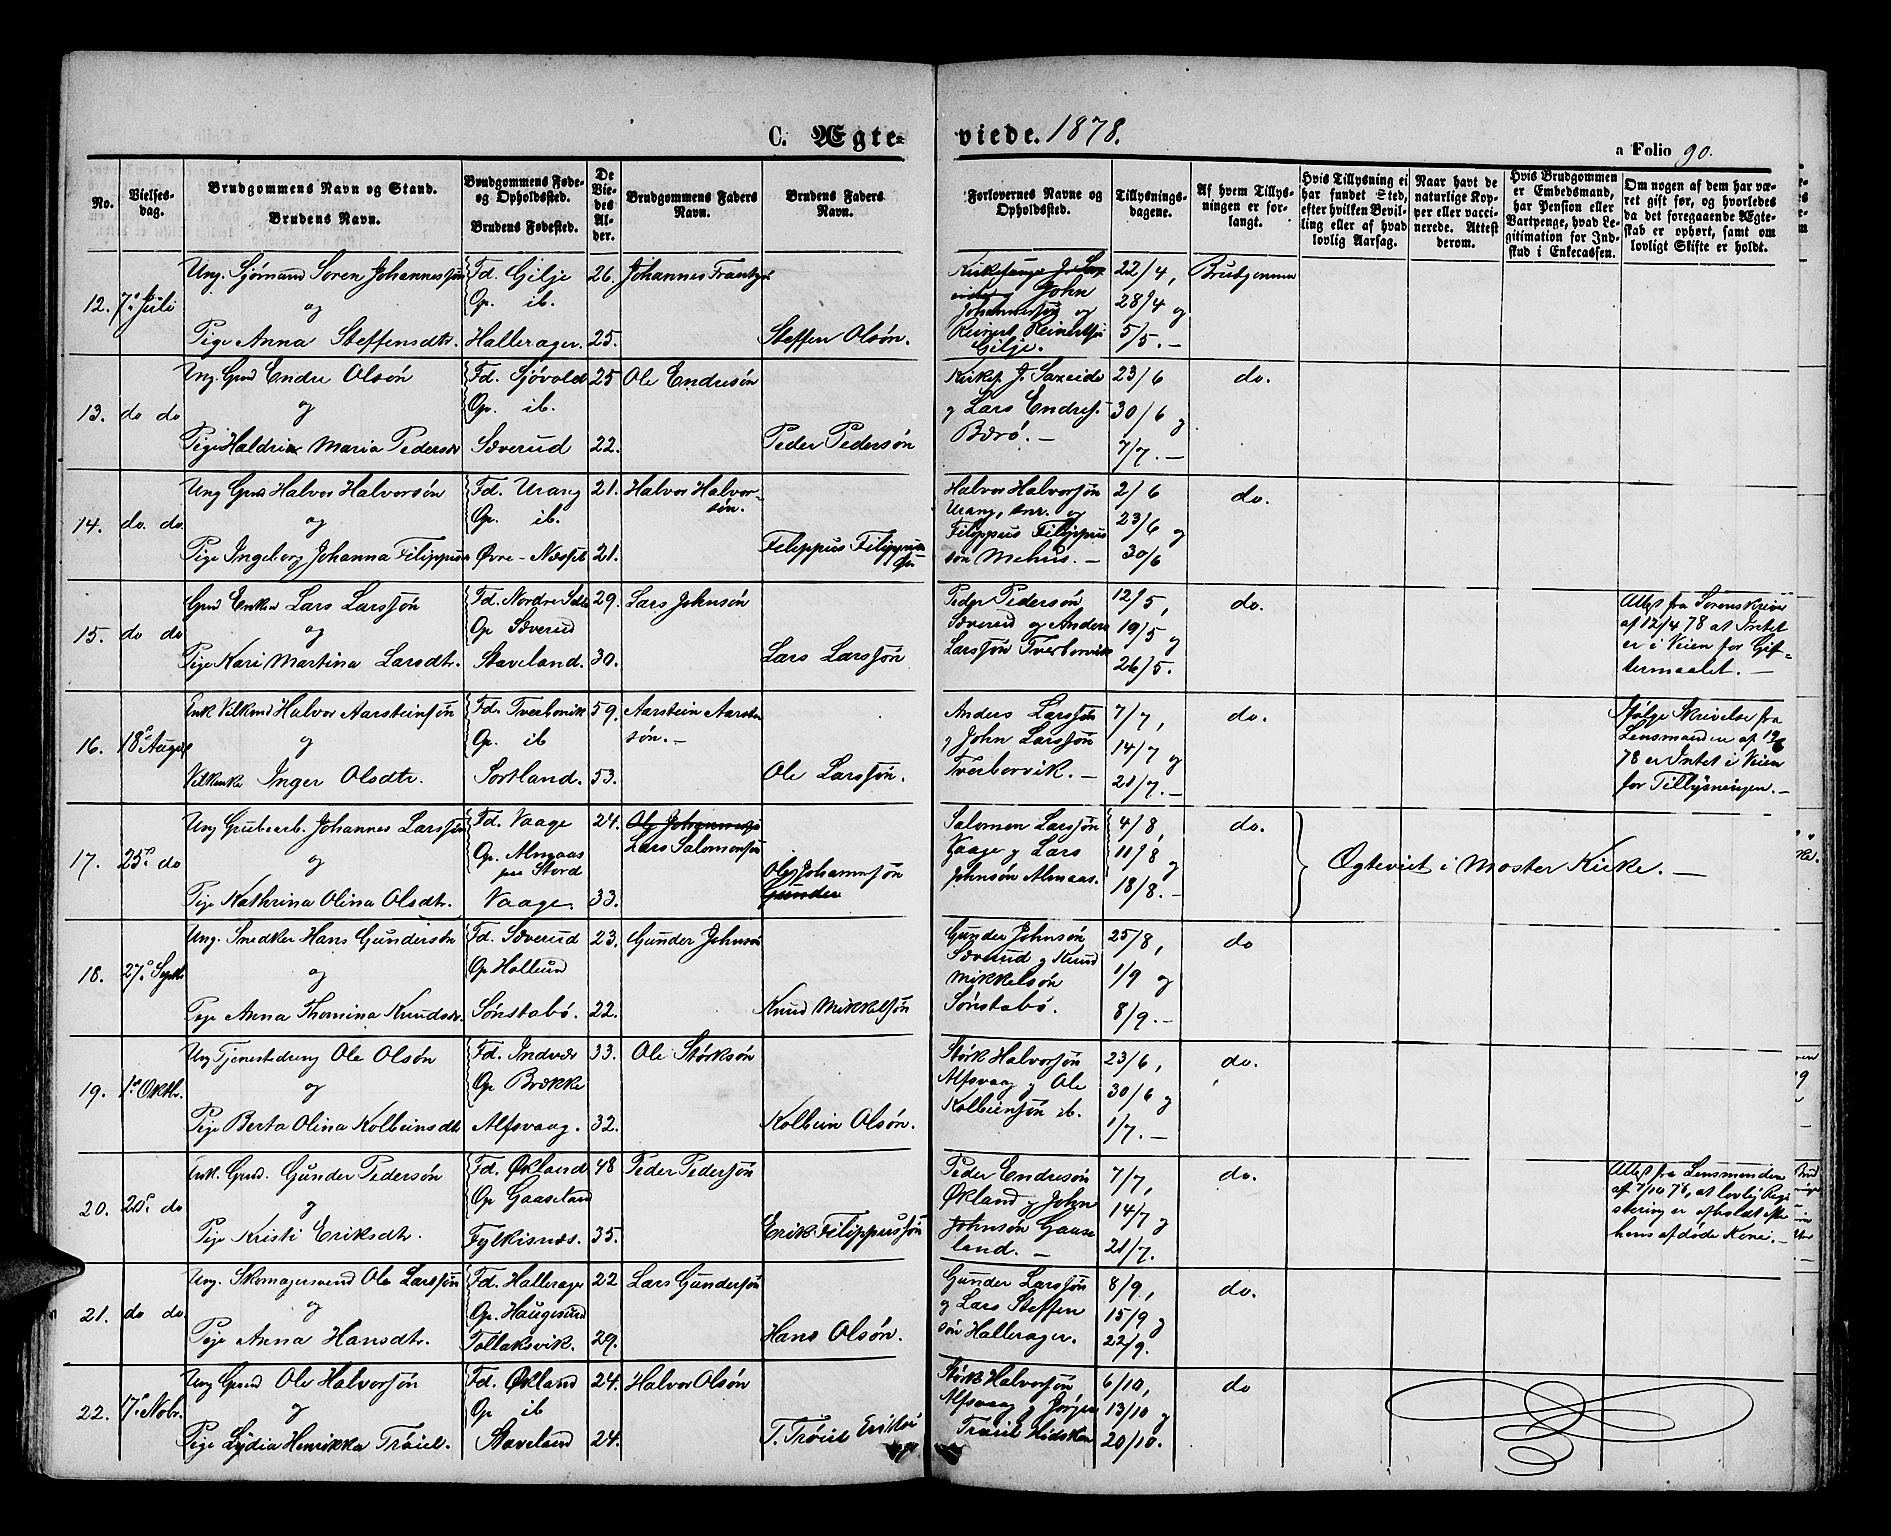 C. Ægte-
viede. 1878.
a Folio 90.
No.
Vielses-
dag.
Brudgommens Navn og Stand.
Brudens Navn.
Brudgommens Føde-
og Opholdssted.
Brudens Fødested.
De
Vie-
des
Al-
der.
Brudgommens Faders
Navn.
Brudens Faders
Navn.
Forlovernes Navne og
Opholdssted.
Tillysnings-
dagene.
Af hvem Tillys-
ningen er for-
langt.
Hvis Tillysning ei
har fundet Sted,
efter hvilken Bevil-
ling eller af hvad
lovlig Aarsag.
Naar havt de
naturlige Kop-
per eller vacci-
nerede. Attest
derom.
Hvis Brudgommen
er Embedsmand,
har Pension eller
Vartpenge, hvad Le-
gitimation for Ind-
skud i Enkecassen.
Om nogen af dem har væ-
ret gift før, og hvorledes
da det foregaaende Ægte-
skab er ophørt, samt om
lovligt Skifte er holdt.
12. 7de Juli
Ung. Sjømand Søren Johannessøn
og
Pige Anna Steffensdtr.
Fd. Gilje
Op. ib.
Hallerager.
26.
25.
Johannes
Steffen Olsøn.
John
Johannessøn og
Reinert Reinertsøn
Gilje.
22/4,
28/4 og
5/5. -
Brudgommen
13. do do
Ung. Grd Endre Olsøn
og
Pige Haldria Maria Pedersdr
Fd. Sjøvold
Op. ib.
Sæverud
25
22.
Ole Endresøn
Peder Pedersøn
Kirkes. J. Saxeide
og Lars Endres.
Bærø. -
23/6
30/6 og
7/7. -
do.
14. do. do.
Ung Grd Halvor Halvorsøn
og
Pige Ingeborg Johanna Filippusdr
Fd. Urang
Op. ib.
Øvre-Næsse
21.
21.
Halvor Halvor-
søn.
Filippus Filippus
søn
Halvor Halvorsøn
Urang, snr. og
Filippus Filippus
søn Mehus. -
2/6
23/6 og
30/6
do.
15. do do
Grd Enkem Lars Larssøn
og
Pige Kari Martina Larsdtr.
Fd. Nordre
Op Sæverud
Staveland.
29.
30.
Lars Johnsøn
Lars Larssøn
Peder Pedersøn
Sæverud og Anders
Larssøn Tverborvik
12/5,
19/5 og
26/5.
do.
Attest fra Sorenskriver
af 12/4 78 at Intet
er i Veien for Gif-
termaalet. -
16. 18de August
Enk. Vilkmd Halvor Aarsteinsøn
og
Vilkenke Inger Olsdtr.
Fd. Tverborvik
Op. ib
Sortland.
59.
53.
Aarstein Aarstein
søn. -
Ole Larssøn.
Anders Larssøn
og John Larssøn
Tverborvik. -
7/7,
14/7 og
21/7. -
do.
Ifølge Skrivelse fra
Lensmanden af 19/6
78 er Intet i Veien
for Tillysningen. -
17. 25de do
Ung Grubearb. Johannes Larssøn
og
Pige Kathrina Olina Olsdtr.
Fd. Vaage
Op. Almaas
paa Stord
Vaage.
24.
33.
Ole Johannessøn
Lars Salomonsøn
Ole Johannssøn
Gunder
Salomon Larssøn
Vaage og Lars
Johnsøn Almaas.
4/8,
11/8 og
18/8. -
do.
Ægteviet i Moster Kirke. -
18. 27de Septbr
Ung. Snedker Hans Gundersøn
og
Pige Anna Thomina Knudsdr.
Fd. Sæverud
Op Hollund
Sønstabø.
23.
22.
Gunder Johnsøn
Knud Mikkelsøn
Gunder Johnsøn
Sæverud og Knud
Mikkelsøn
Sønstabø.
25/8,
1/9 og
8/9. -
do
19. 1ste Oktbr.
Ung Tjenestedreng Ole Olsøn
og
Pige Berta Olina Kolbeinsdtr
Fd. Indvær
Op Brække
Alfsvaag.
33.
32.
Ole Størksøn
Kolbein Olsøn.
Størk Halvorsøn
Alfsvaag og Ole
Kolbeinsøn ib.
23/6,
30/6 og
1/7. -
do.
20. 25de do
Enk. Grd. Gunder Pedersøn
og
Pige Kristi Eriksdtr.
Fd. Økland
Op Gaaseland
Fylkisnæs.
48
35.
Peder Pedersøn
Erik Filippussøn
Peder Endresøn
Økland og John
Johnsøn Gaase
land. -
7/7,
14/7 og
21/7.
do.
Attest fra Lensmanden
af 7/10 78, at lovlig Regi
strering er afholdt efter
hans afdøde Kone. -
21. do do.
Ung. Skomagersvend Ole Larssøn
og
Pige Anna Hansdtr.
Fd. Hallerager
Op. Haugesund
Tollaksvik.
22
29.
Lars Gundersøn
Hans Olsøn.
Gunder Larssøn
og Lars Steffen
søn Hallerager.
8/9,
15/9 og
22/9.
do.
22. 7de Novbr.
Ung Grd Ole Halvorsøn
og
Pige Lydia Henrikka Trøiel.
Fd. Økland
Op ib
Staveland
24.
24.
Halvor Olsøn
T. Trøiel
Størk Halvorsøn
Alfsvaag og Jørgen
Trøiel Hidsken
6/10,
13/10 og
20/10.
do